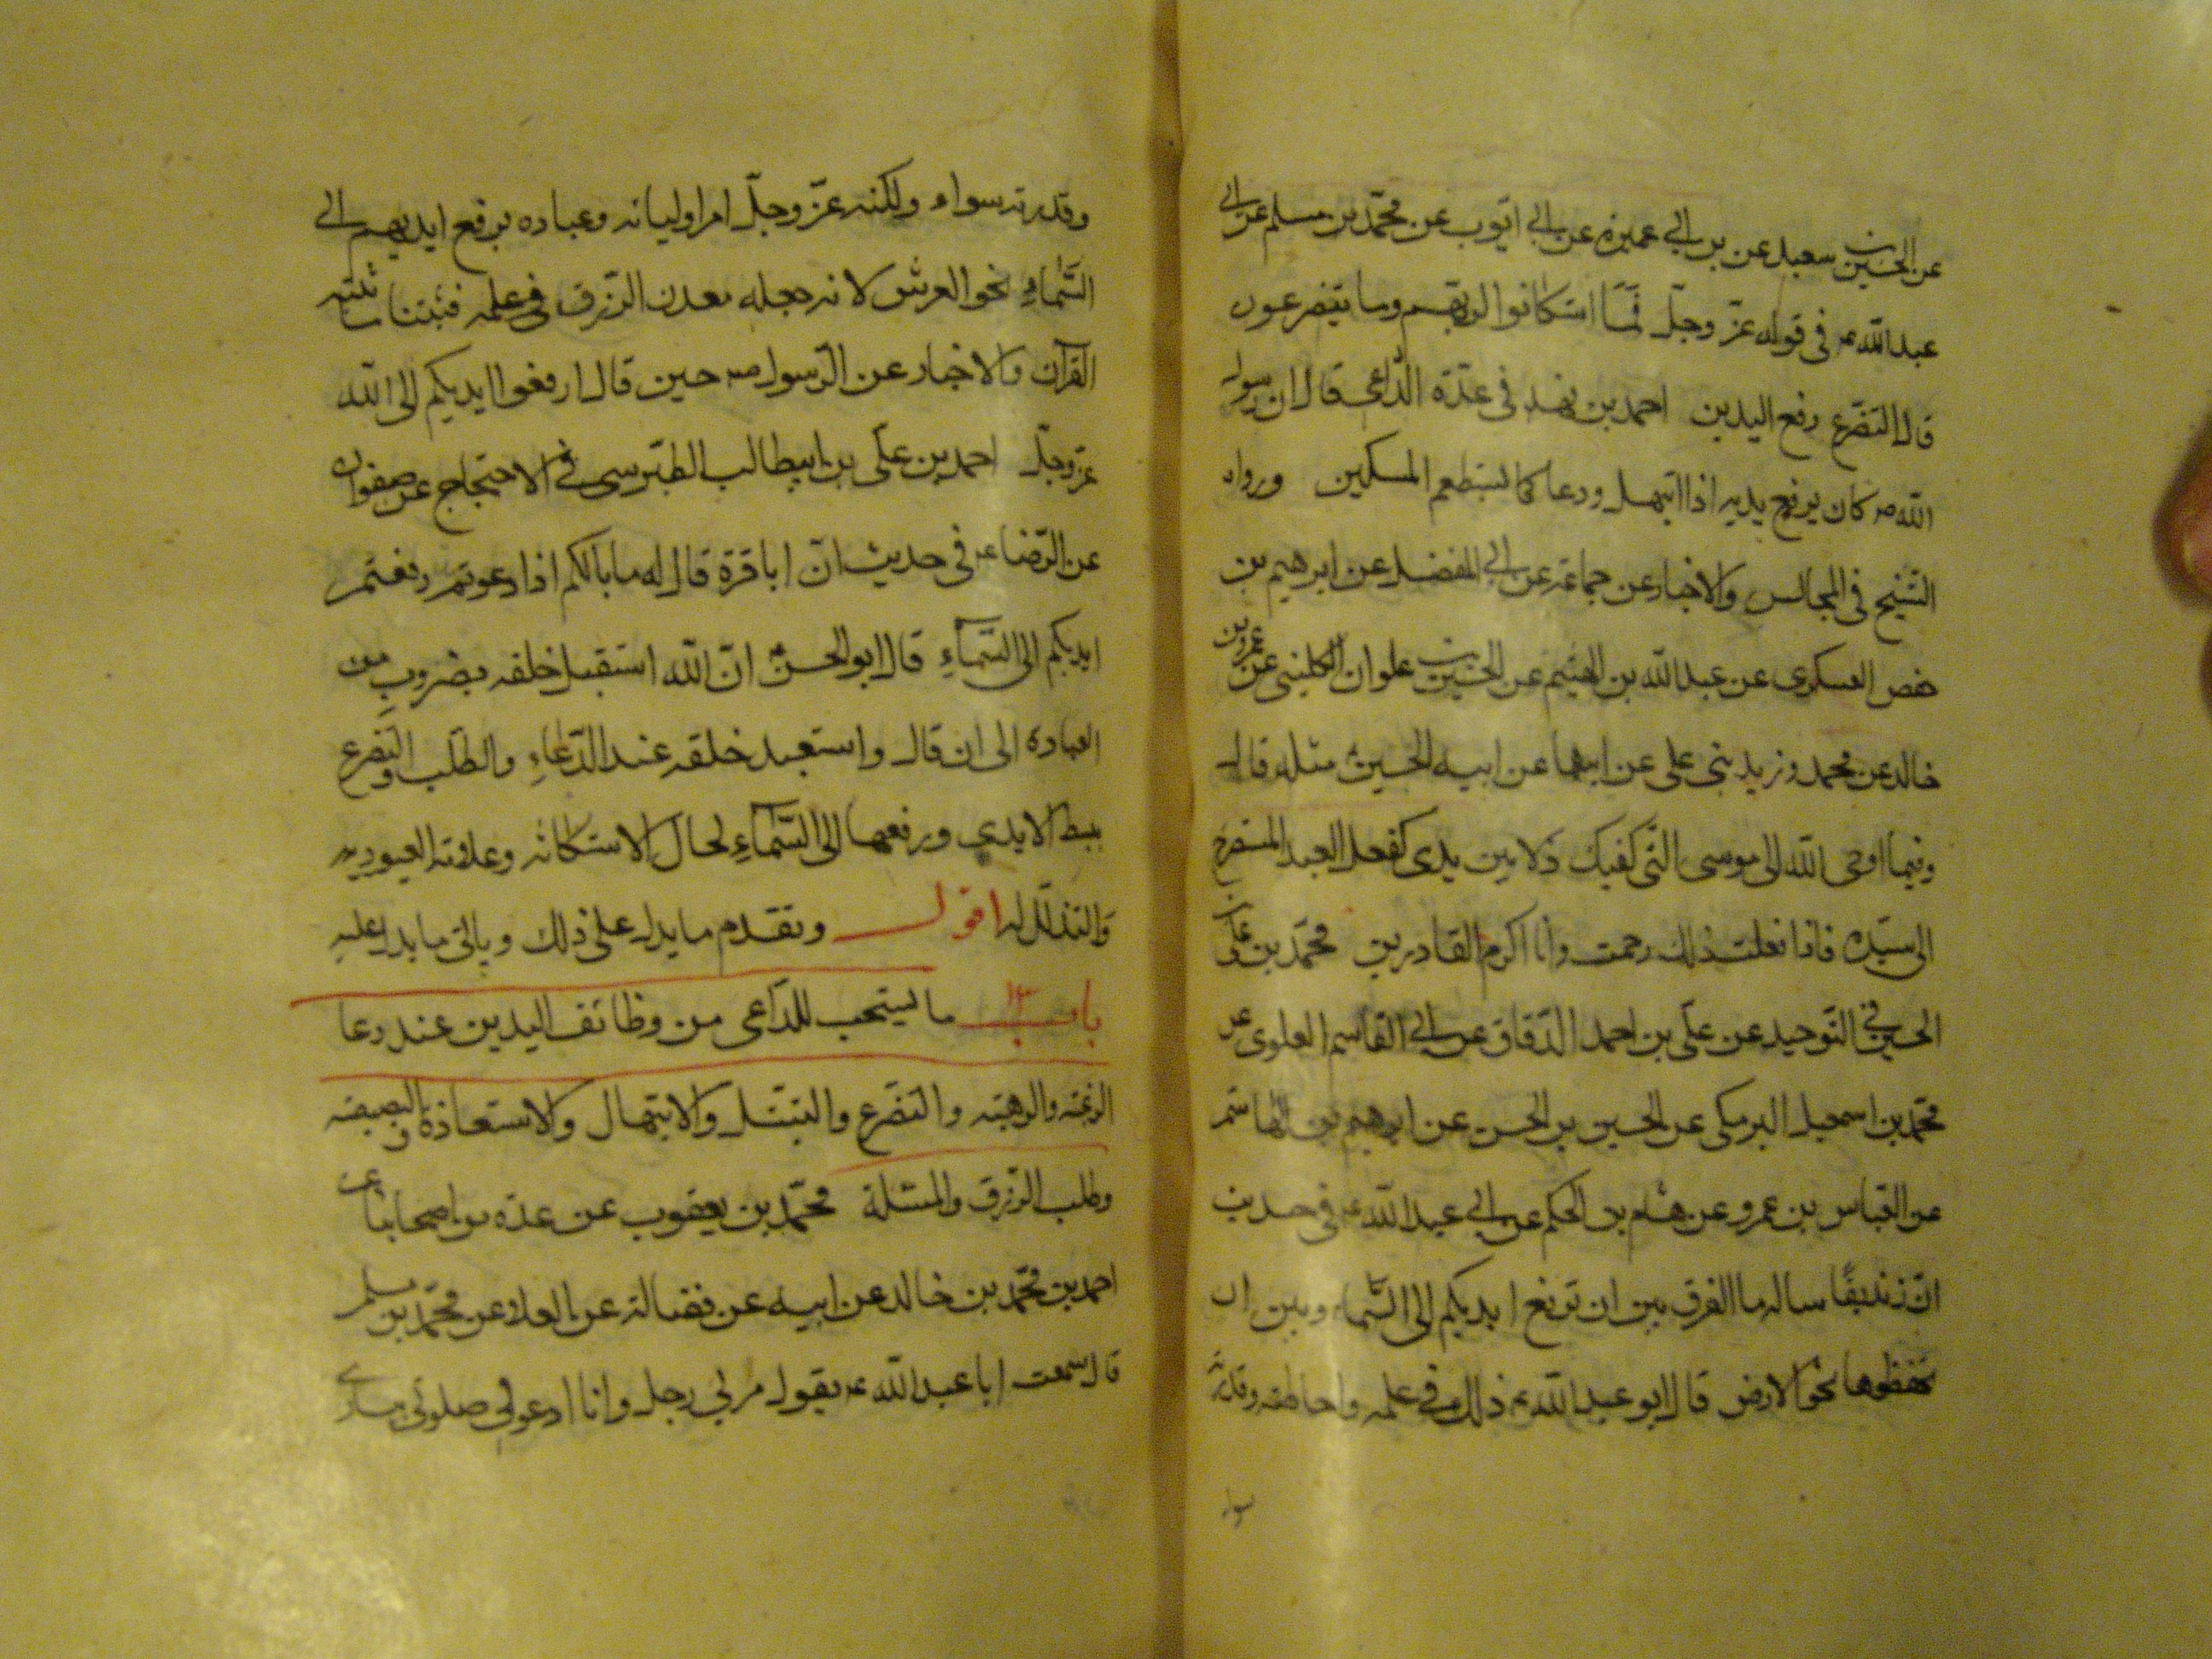 عن الحسين بن سعيد عن بن ابي عمير عن ابي ايوب عن محمد بن مسلم عن ابي
عبد الله ع في قوله عز وجل فما استكانوا لربهم وما يتضرعون
قال التضرع رفع اليدين احمد بن فهد في عدة الداعي قال ان رسول
الله ص كان يرفع يديه اذا ابتهل ودعا كما يستطعم المسكين ورواه
الشيخ في المجالس والاخبار عن جماعة عن ابي المفضل عن ابرهيم بن
حفص العسكري عن عبد الله بن الهيثم عن الحسين بن علوان الكليني عن عمرو بن
خالد عن محمد وزيد بني علي عن ابيهما عن ابيه الحسين ع مثله قال
وفيما اوحى الله الى موسى الق كفيك ذلا بين يدي كفعل العبد المستصرخ
الى سيده فاذا فعلت ذلك رحمت وانا اكرم القادرين محمد بن علي بن
الحسين في التوحيد عن علي بن احمد الدقاق عن ابي القاسم العلوي عن
محمد بن اسمعيل البرمكي عن الحسين بن الحسن عن ابرهيم بن الهاشم
عن العباس بن عمرو عن هشام بن الحكم عن ابي عبد الله ع في حديث
ان زنديقا ساله ما الفرق بين ان ترفع ايديكم الى السماء وبين ان
تخفظوها نحو الارض قال ابو عبد الله ع ذلك في علمه واحاطته وقدرته
سوا
وقدرته سواء ولكنه عز وجل امر اوليائه وعباده برفع ايديهم الى
السماء نحو العرش لانه جعله معدن الرزق في علمه فثبتنا ما ثبته
القرآن والاخبار عن الرسول ص حين قال ارفعوا ايديكم الى الله
عز وجل احمد بن علي بن ابيطالب الطبرسي في الاحتجاج عن صفوان
عن الرضا ع في حديث ان ابا قرة قال له ما بالكم اذا دعوتم رفعتم
ايديكم الى السماء قال ابو الحسن ع ان الله استقبل خلقه بضروب من
العبادة الى ان قال واستعبد خلقه عند الدعاء والطلب والتضرع
ببسط الايدي ورفعها الى السماء لحال الاستكانة وعلامة العبودية
والتذلل له اقول وتقدم ما يدل على ذلك وياتي ما يدل عليه
باب ١٣ ما يستحب للداعي من وظائف اليدين عند دعا
الرغبة والرهبة والتضرع والتبتل والابتهال والاستعاذة والبصبصة
وطلب الرزق والمسئلة محمد بن يعقوب عن عدة من اصحابنا عن
احمد بن محمد بن خالد عن ابيه عن فضالة عن العلا عن محمد بن مسلم
قال سمعت ابا عبد الله ع يقول مر بي رجل وانا ادعو في صلوتي